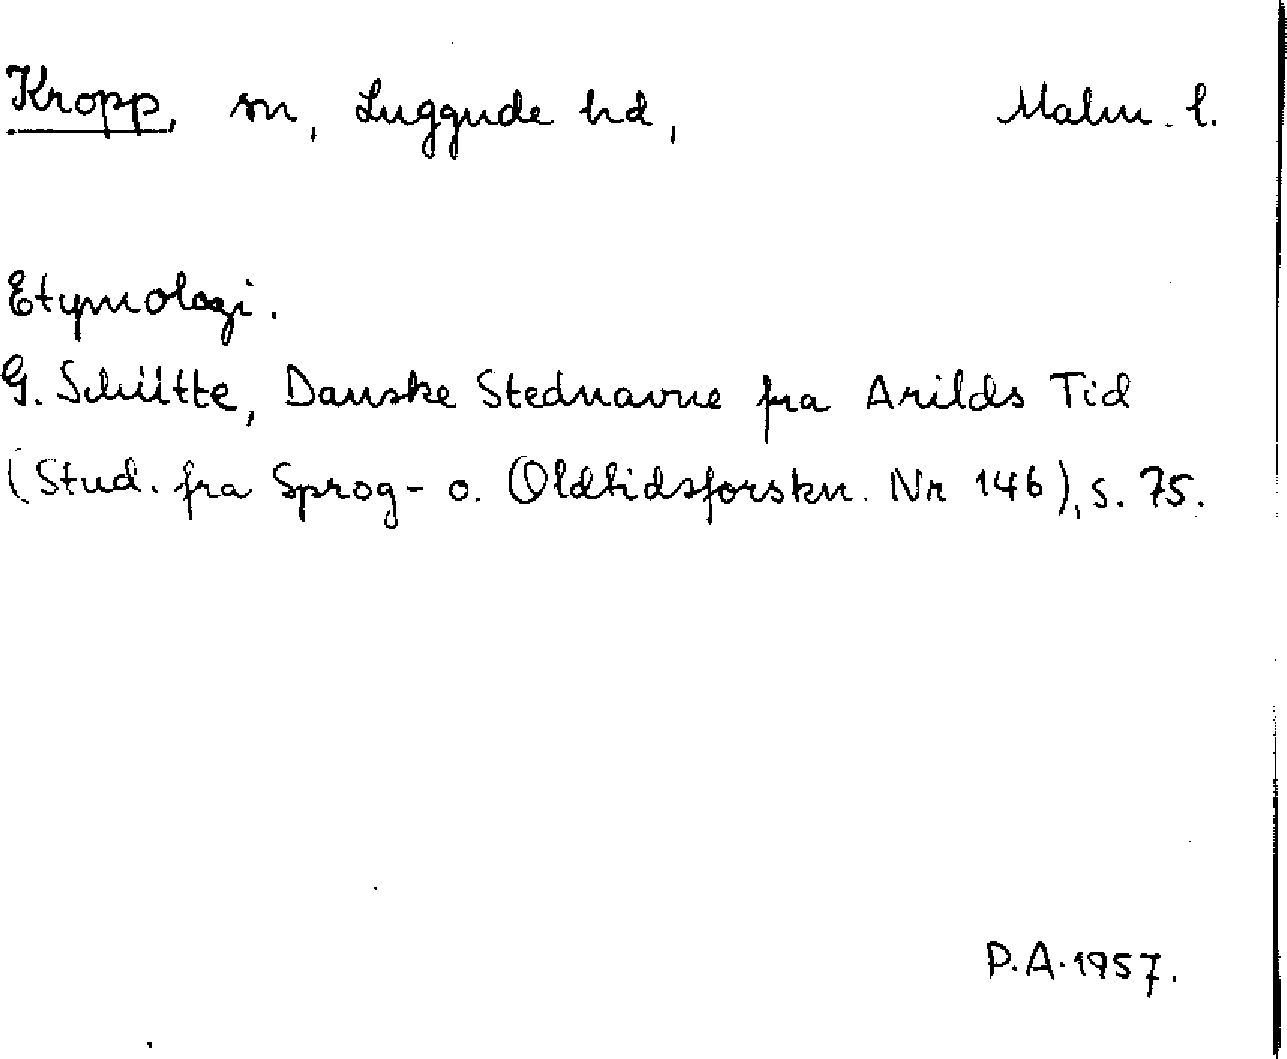 Kropp, sn, Luggude hd, Malm. l.
Etymologi.
G. Schütte, Danske Stednavne fra Arilds Tid
(Stud. fra Sprog- o. Oldtidsforskn. Nr 146), s. 75.
P.A. 1957.